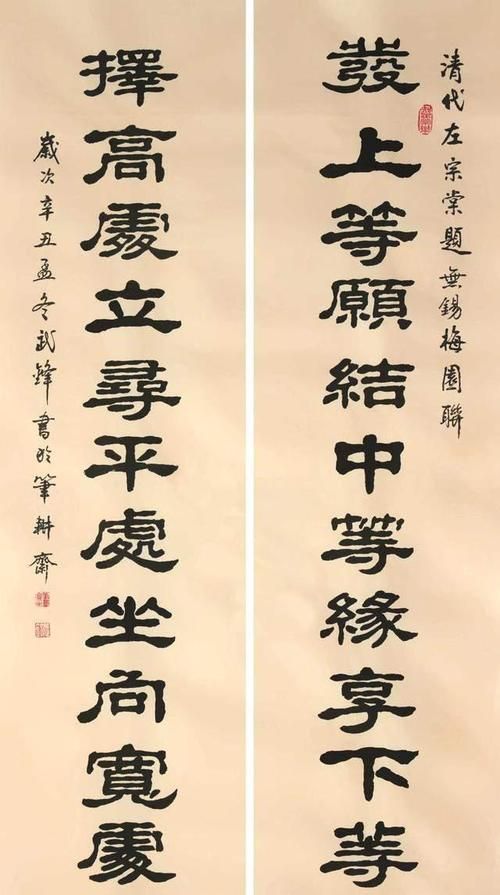 清代左宗棠題無錫梅園聯
發上等願結中等緣享下等
擇高處立尋平處坐向寬處
歲次辛丑孟冬武鋒書於筆耕齋